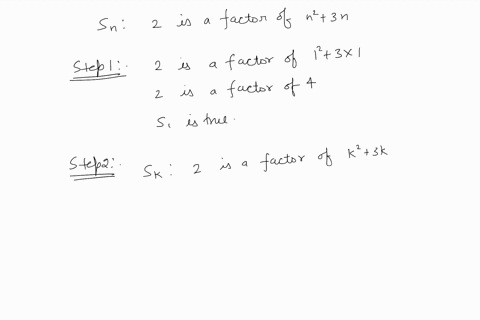 Sₙ: 2 is a factor of n² + 3n
Step 1:. 2 is a factor of 1² + 3 × 1
2 is a factor of 4
S₁ is true.
Step 2:. Sₖ: 2 is a factor of k² + 3k